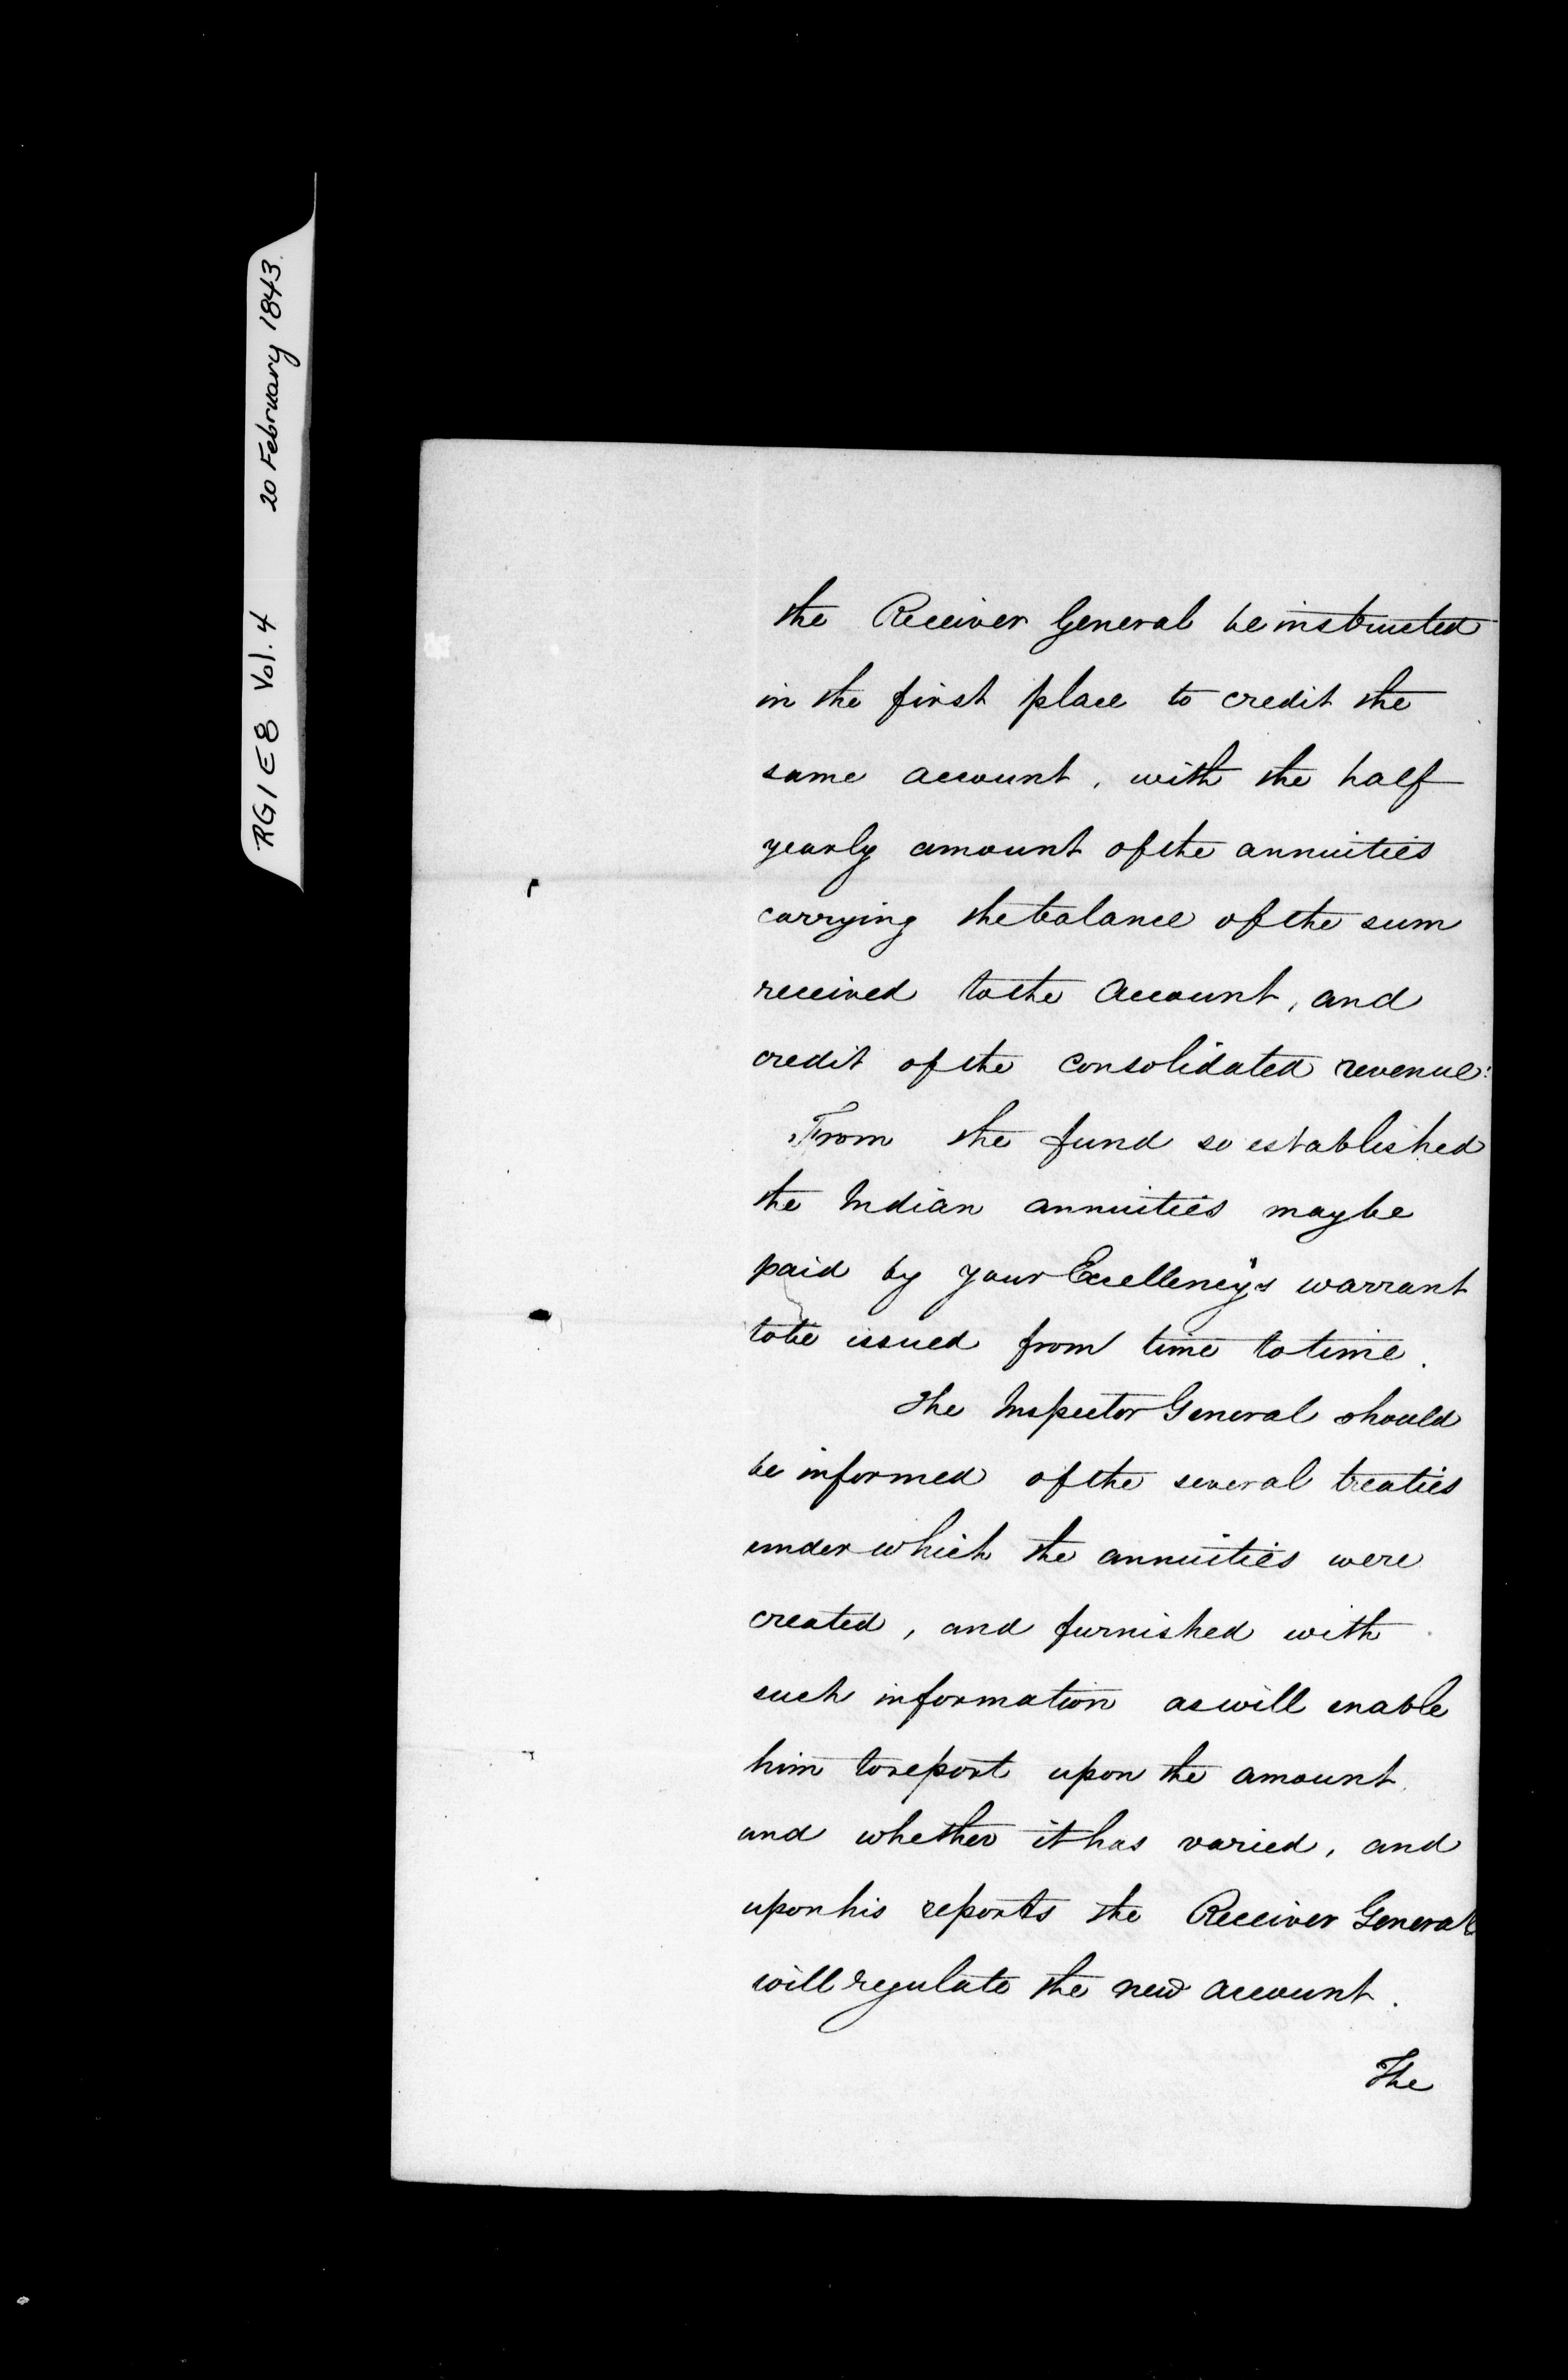 RG1 E8 Vol. 4 20 February 1843.
the Receiver General be instructed
in the first place to credit the
same account, with the half
yearly amount of the annuities
carrying the balance of the sum
received to the Account, and
credit of the Consolidated revenue:
From the fund so established
the Indian annuities may be
paid by your Excellency's warrant
to be issued from time to time.
The Inspector General should
be informed of the several treaties
under which the annuities were
created, and furnished with
such information as will enable
him to report upon the amount
and whether it has varied, and
upon his reports the Receiver General
will regulate the new account.
The